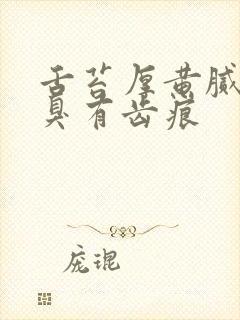 舌苔厚黄腻
臭有齿痕
庞琨